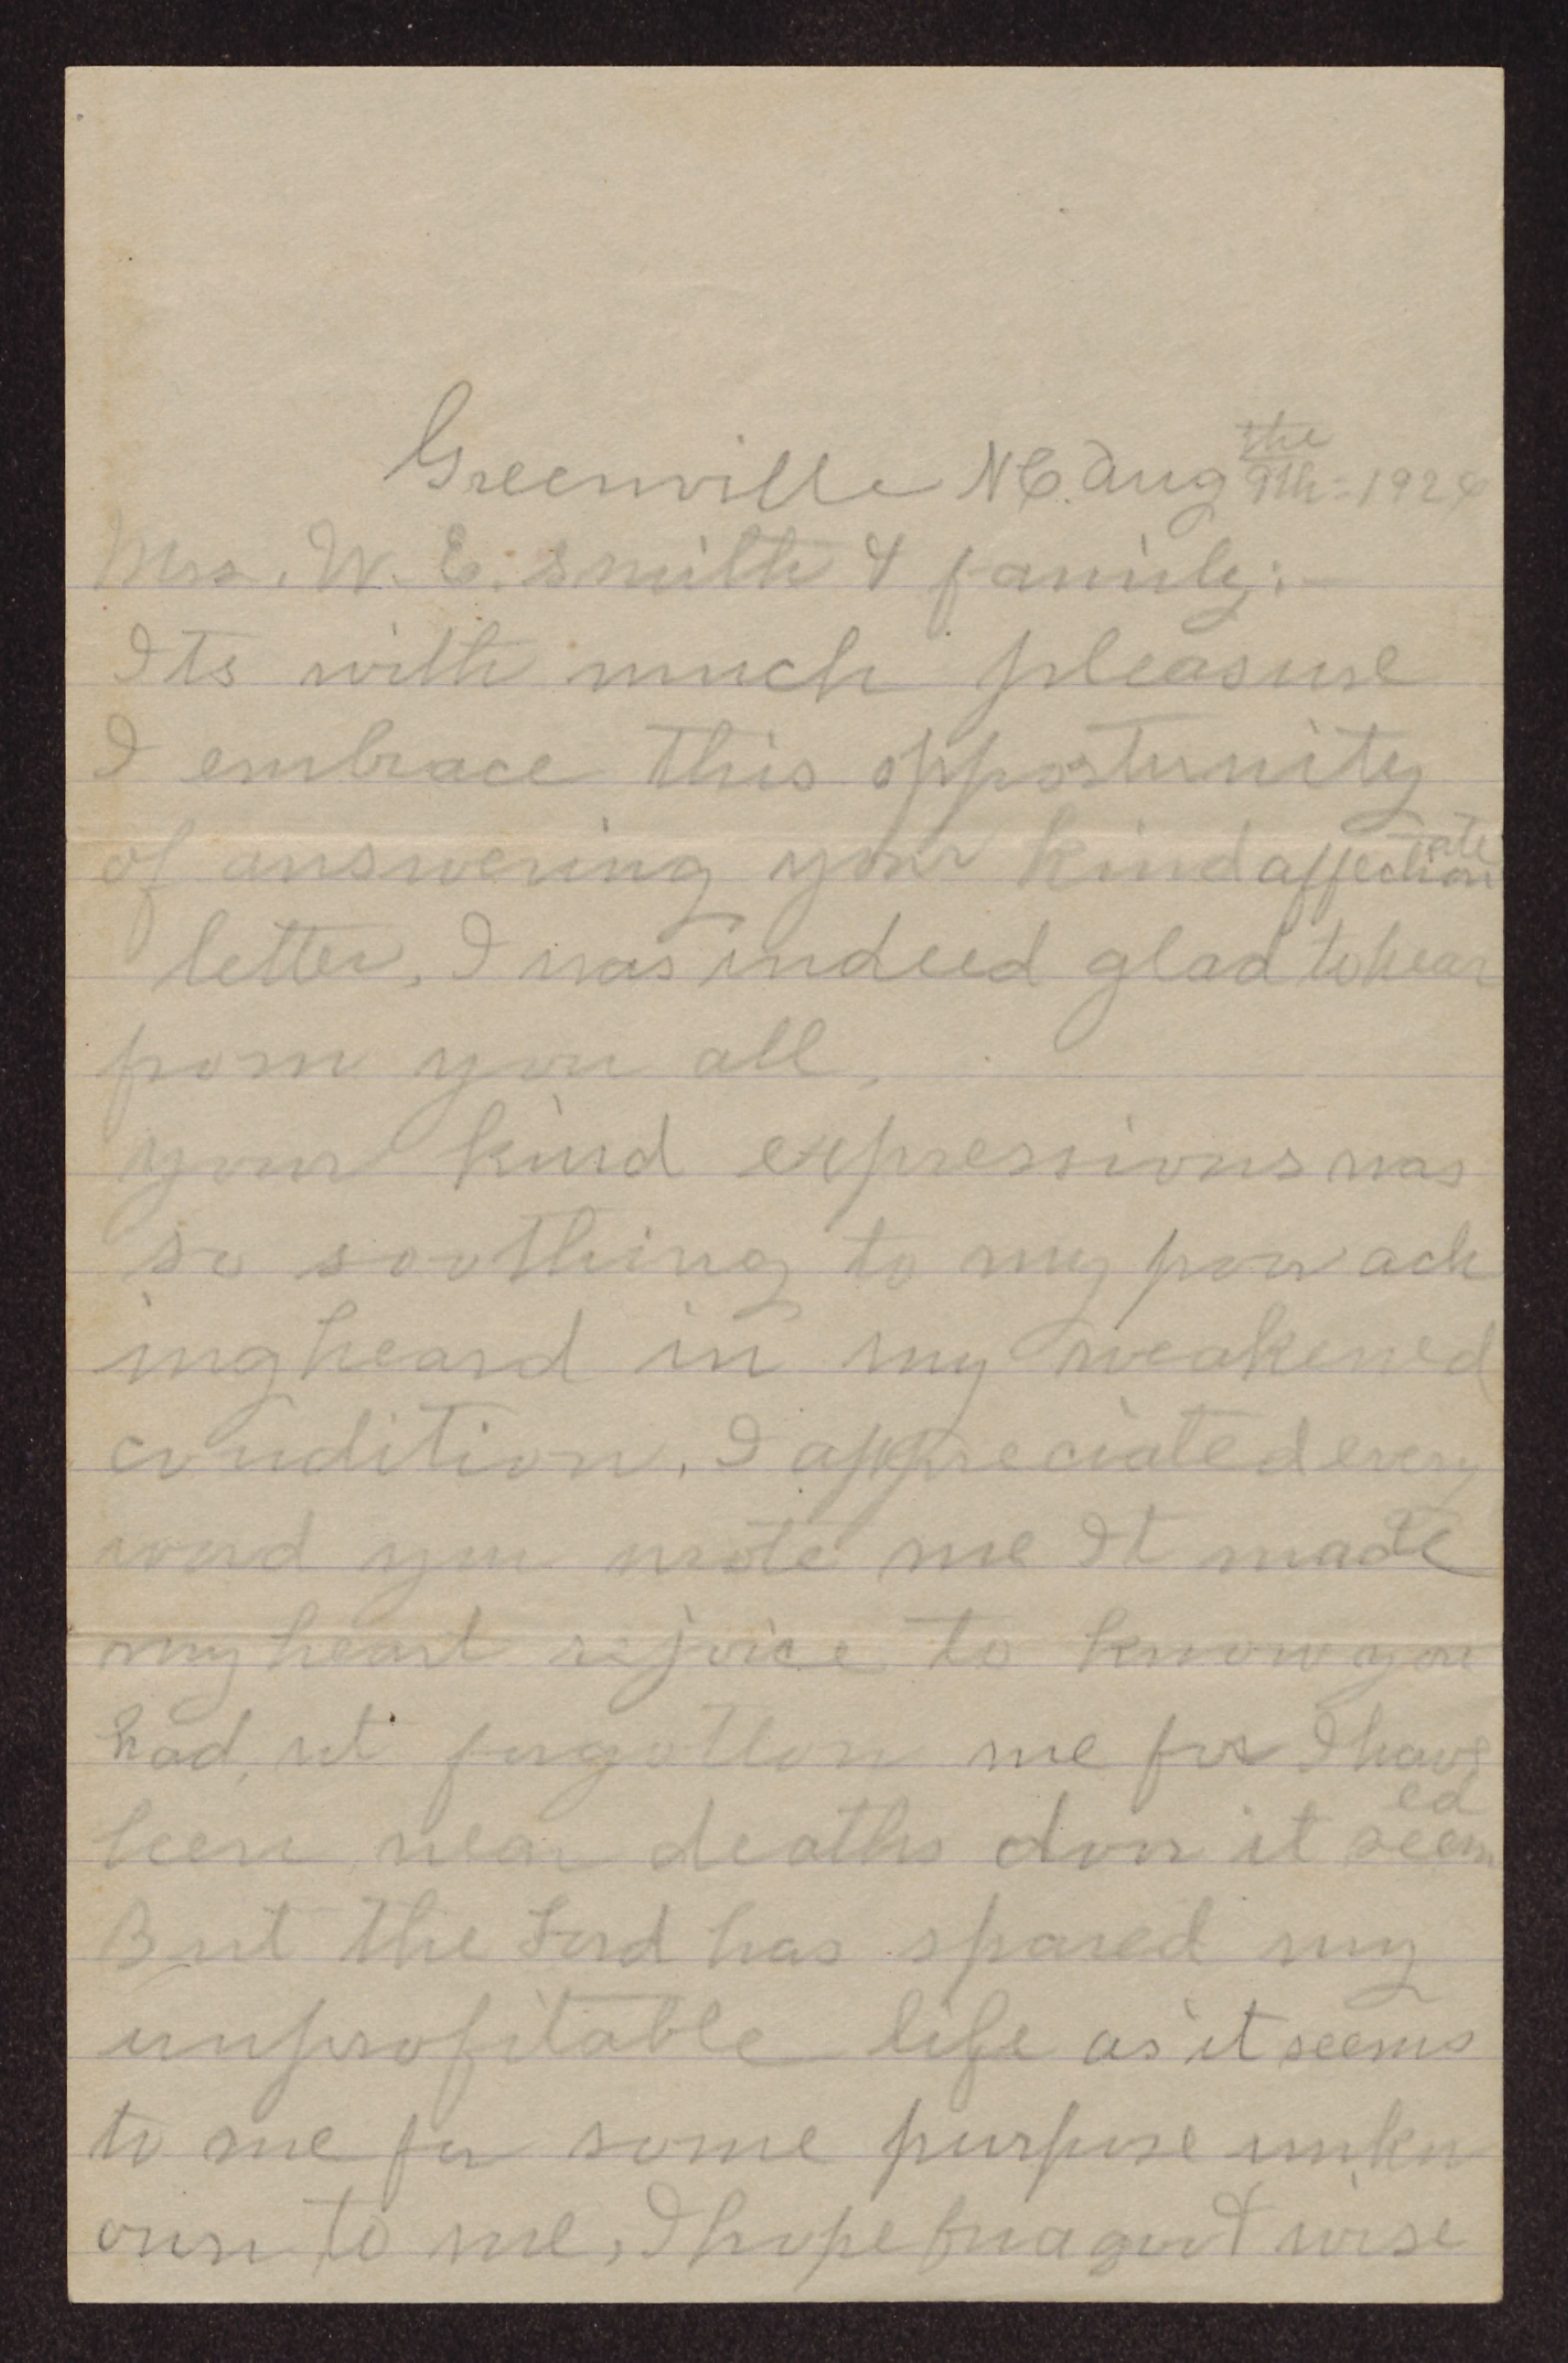 Greenville N.C. Aug the 9th = 192
Mrs. W. E. Smith & family:-
Its with much pleasure
I embrace this opportunity
of answering your kind affectionate
letter, I was indeed glad to hear
from you all,
your kind expressions was
so soothing to my poor ach
ing heard in my weakened
condition. I appreciated every
word you wrote me It made
my heart rejoice to know you
had, nt forgotton me for I have
been near deaths door it seemed
But the Lord has spared my
unprofitable life as it seems
to me for some purpose unkn
own to me, I hope for a good & wise